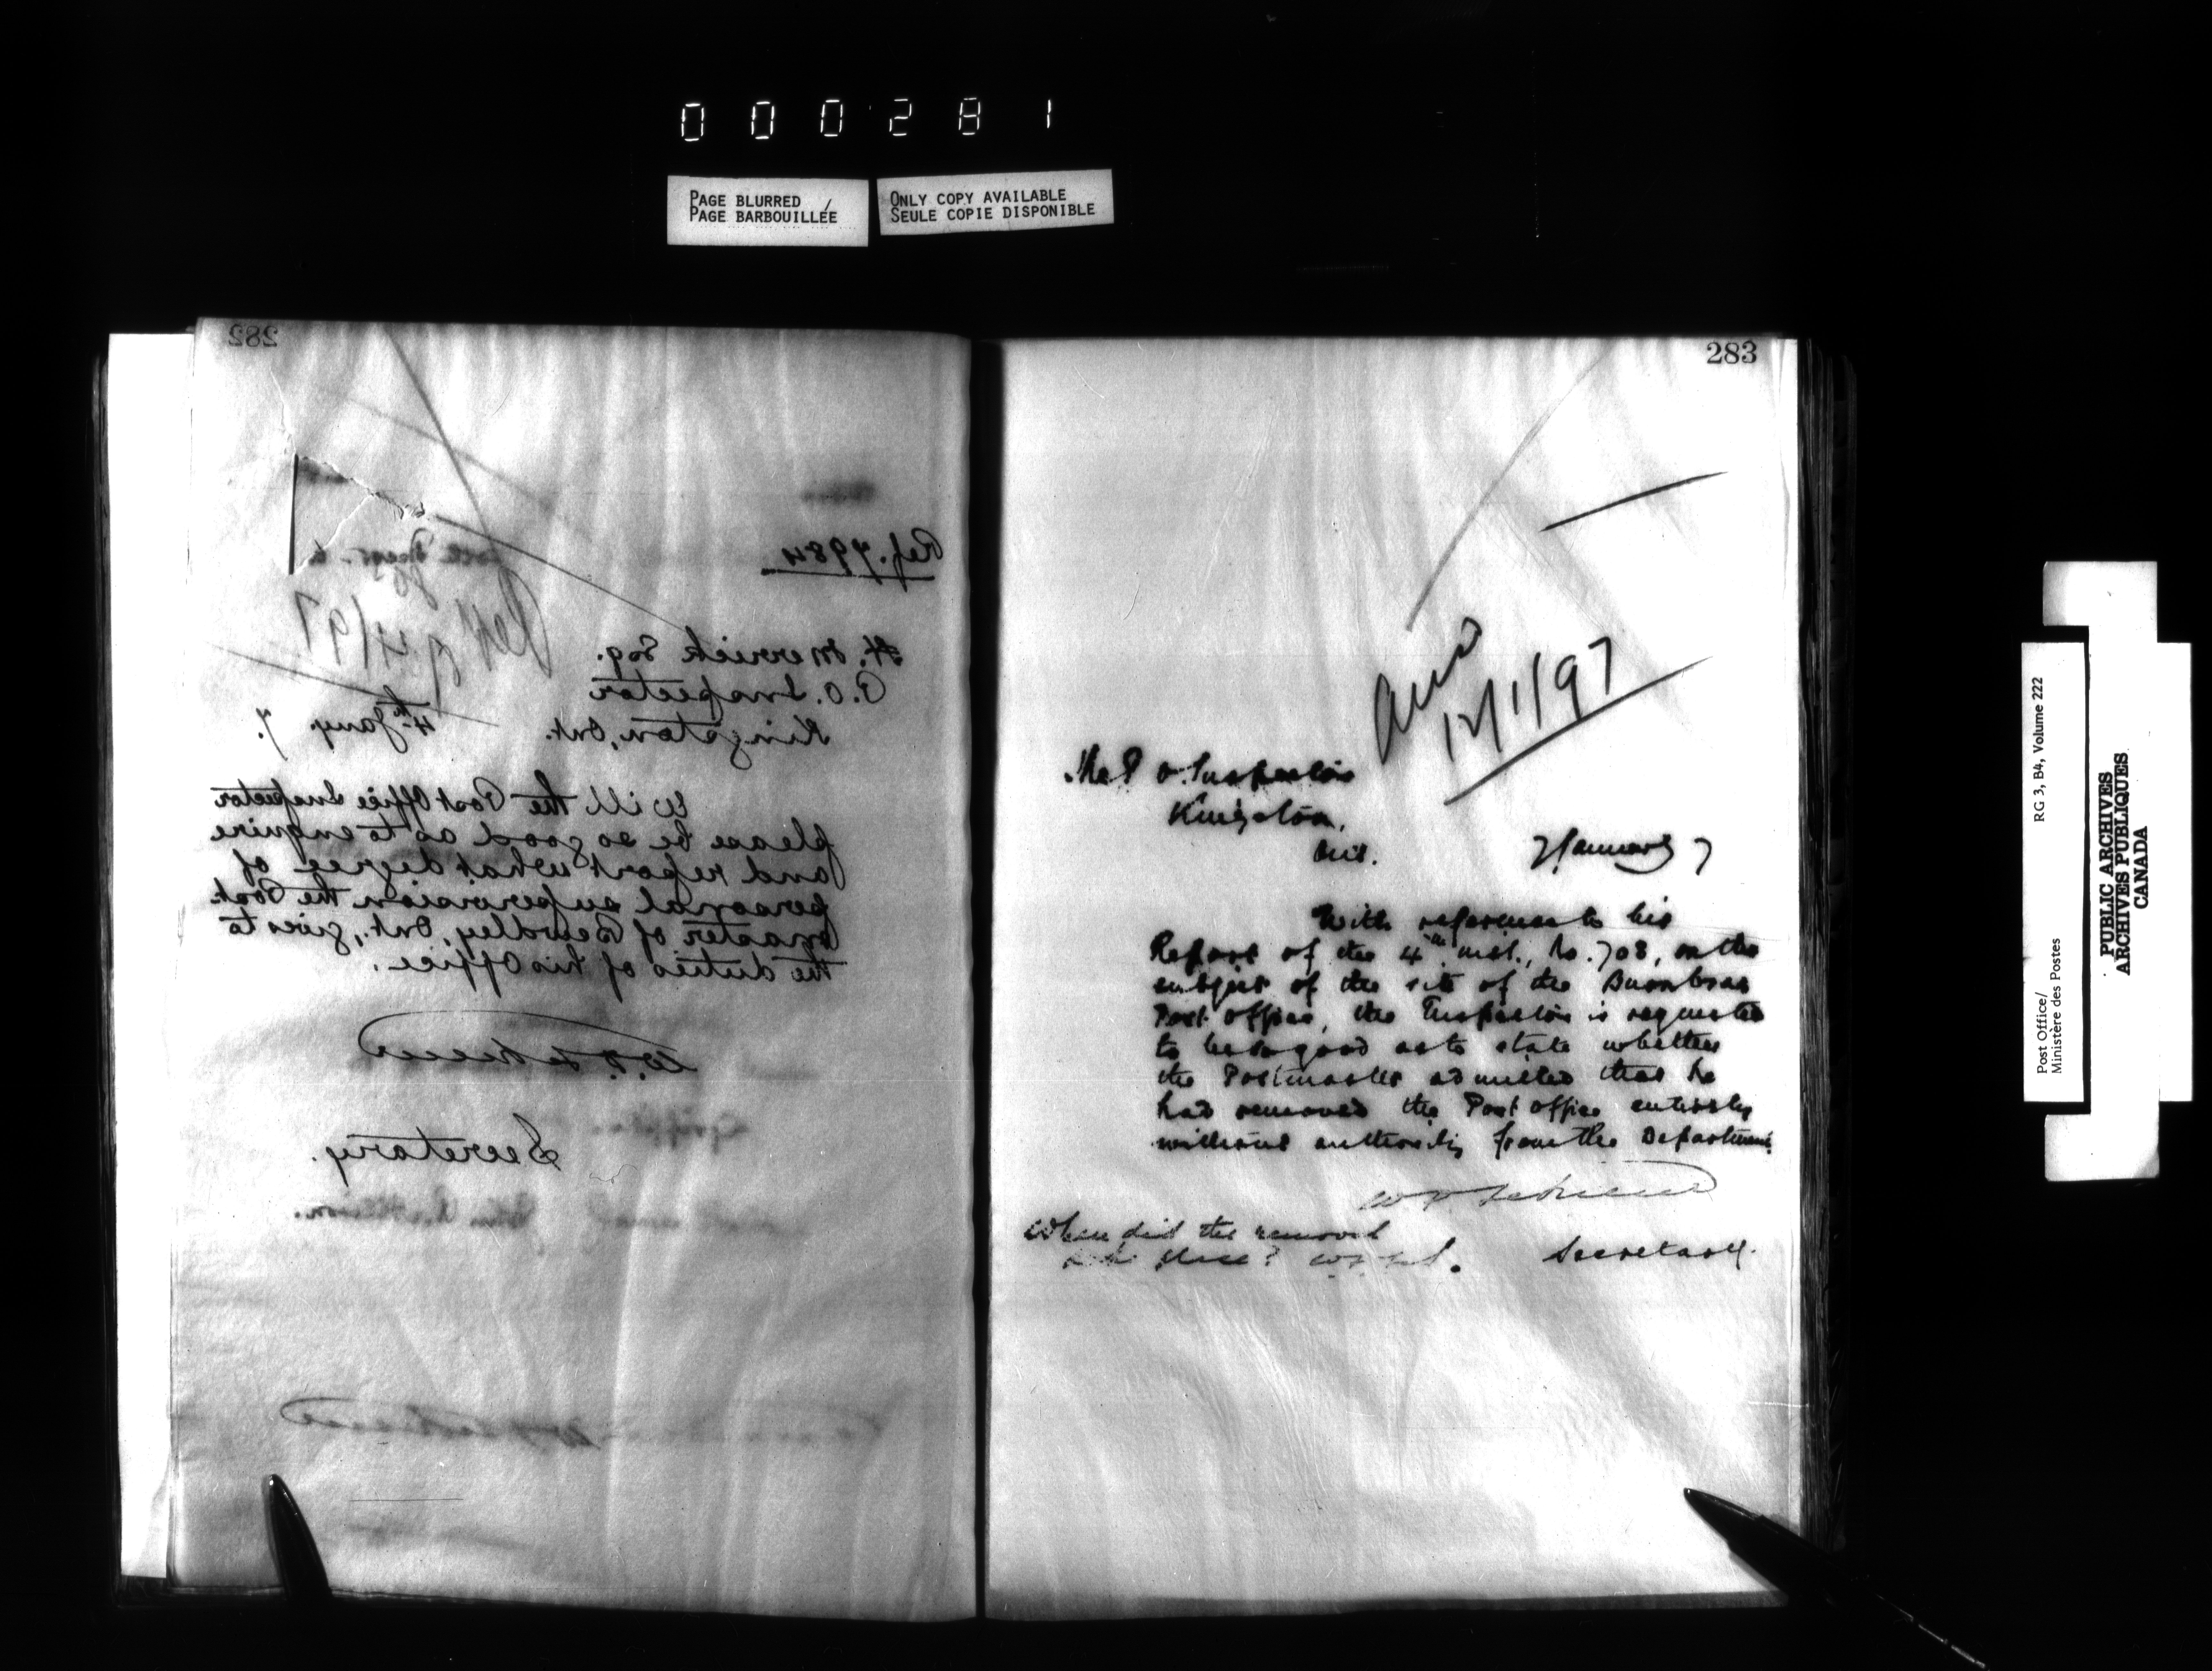 000281
PAGE BLURRED /
PAGE BARBOUILLÉE
ONLY COPY AVAILABLE
SEULE COPIE DISPONIBLE
282
Ref. 7984
Rep
9/4/97
H. Merrick Esq.
P.O. Inspector
Kingston, Ont. 4th Jany. 7.
Will the Post Office Inspector
please be so good as to enquire
and report what degree of
personal supervision the Post-
master of Bewdley, Ont., gives to
the duties of his Office.
Secretary.
283
Ans
12/1/97
The P.O. Inspector
Kingston,
Ont. 7 January 7
With reference to his
Report of the 4th inst., No. 708, on the
subject of the site of the
Post Office, the Inspector is requested
to be so good as to state whether
the Postmaster admitted that he
had removed the Post Office entirely
without authority from the Department.
Secretary.
When did the removal
take place?
Post Office/
Ministère des Postes
RG 3, B4, Volume 222
PUBLIC ARCHIVES
ARCHIVES PUBLIQUES
CANADA